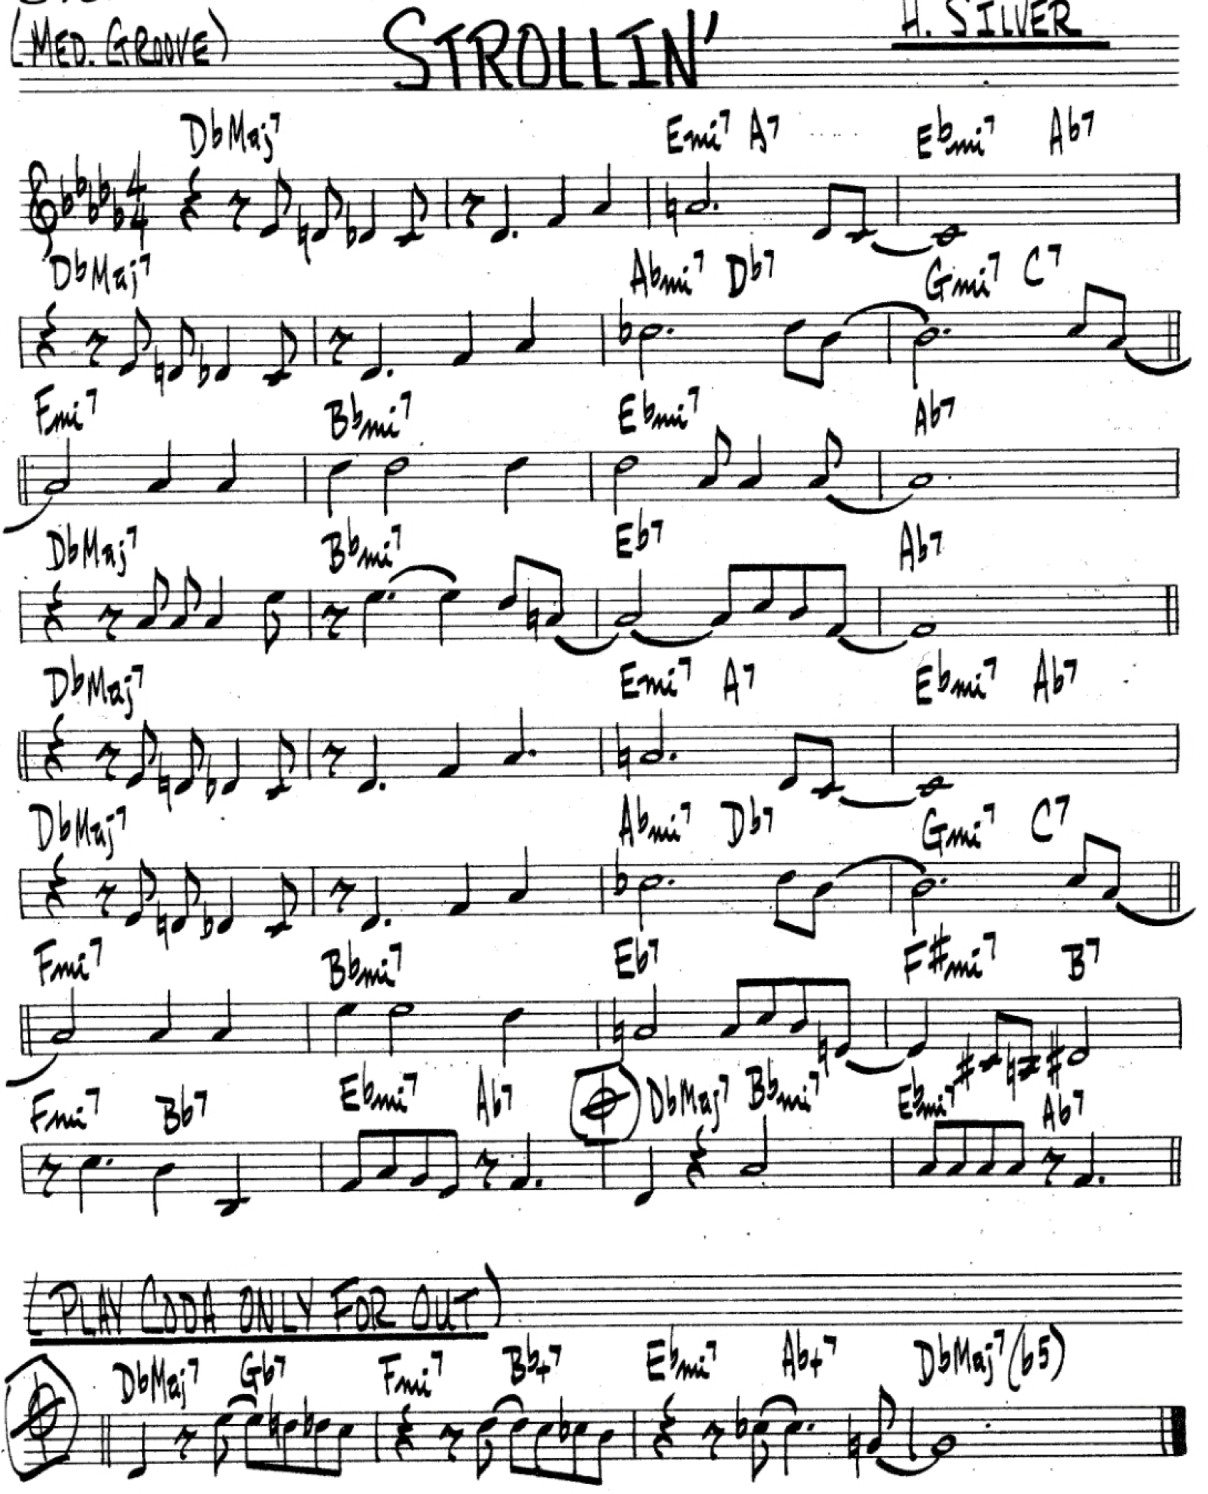 (MED. GROOVE) STROLLIN' H. SILVER
DbMaj7 Emi7 A7 Ebmi7 Ab7
4
4
DbMaj7 Abmi7 Db7 Gmi7 C7
Fmi7 Bbmi7 Ebmi7 Ab7
DbMaj7 Bbmi7 Eb7 Ab7
DbMaj7 Emi7 A7 Ebmi7 Ab7
DbMaj7 Abmi7 Db7 Gmi7 C7
Fmi7 Bbmi7 Eb7 F#mi7 B7
Fmi7 Bb7 Ebmi7 Ab7 DbMaj7 Bbmi7 Ebmi7 Ab7
(PLAY CODA ONLY FOR OUT)
DbMaj7 Gb7 Fmi7 Bb+7 Ebmi7 Ab+7 DbMaj7(b5)